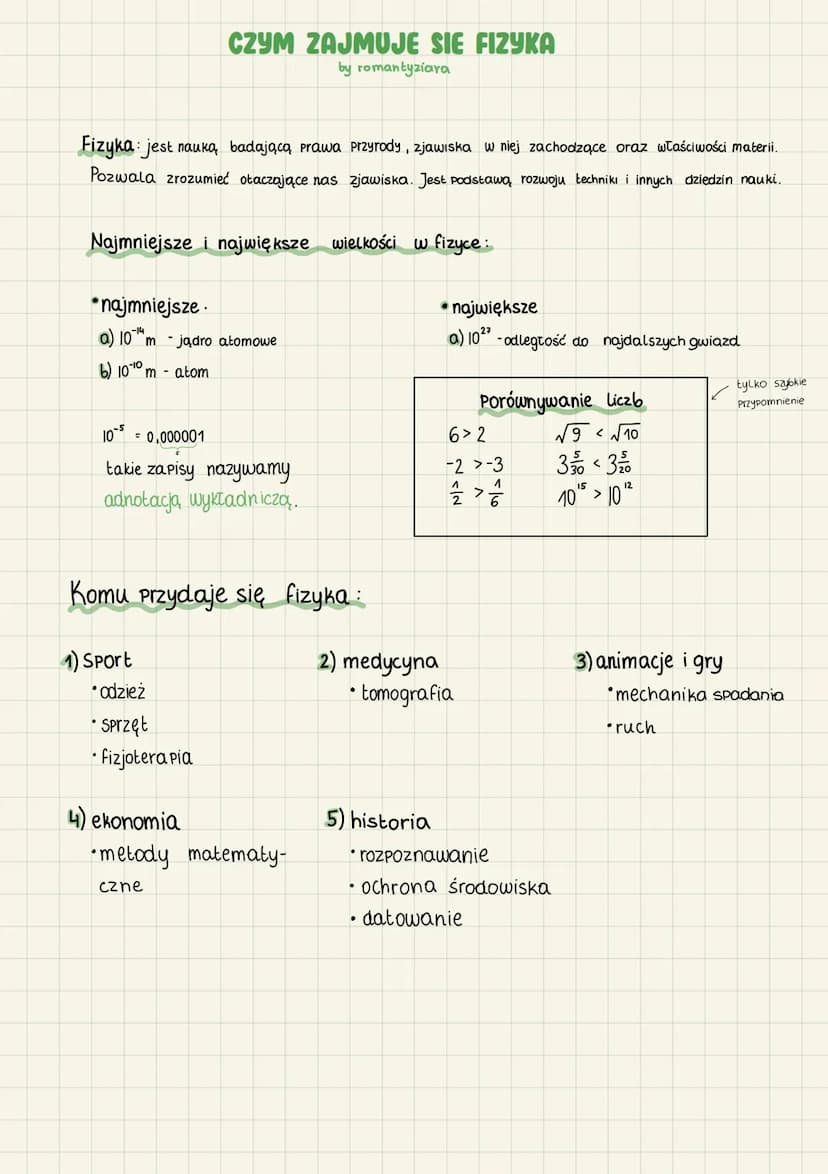 CZYM ZAJMUJE SIE FIZYKA
by romantyziara
Fizyka: jest nauką badającą prawa przyrody, zjawiska w niej zachodzące oraz właściwości materii.
Pozwala zrozumieć otaczające nas zjawiska. Jest podstawą rozwoju techniki i innych dziedzin nauki.
Najmniejsze i największe wielkości w fizyce:
• najmniejsze.
a) 10⁻¹⁴ m - jądro atomowe
b) 10⁻¹⁰ m - atom
10⁻⁵ = 0,000001
takie zapisy nazywamy
adnotacją wykładniczą.
• największe
a) 10²⁷ - odległość do najdalszych gwiazd
tylko szybkie
przypomnienie
Porównywanie liczb
6 > 2 √9 < √10
-2 > -3 3 5/30 < 3 5/20
1/2 > 1/6 10¹⁵ > 10¹²
Komu przydaje się fizyka:
1) Sport
• odzież
• sprzęt
• fizjoterapia
2) medycyna
• tomografia
3) animacje i gry
• mechanika spadania
• ruch
4) ekonomia
• metody matematy-
czne
5) historia
• rozpoznawanie
• ochrona środowiska
• datowanie